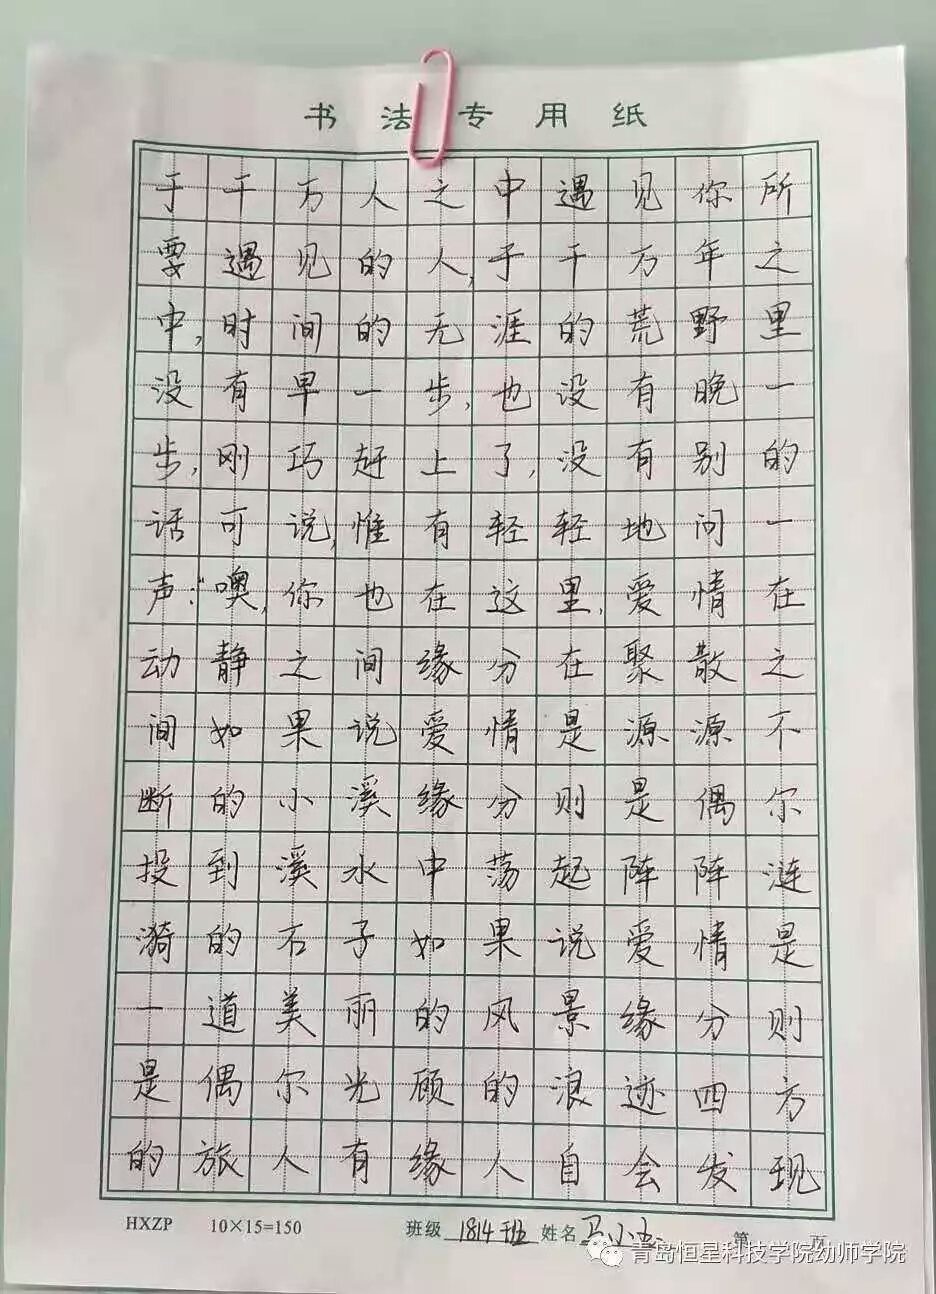 书法专用纸
于千万人之中遇见你所
要遇见的人,于千万年之
中,时间的无涯的荒野里
没有早一步,也没有晚一
步,刚巧赶上了,没有别的
话可说,惟有轻轻地问一
声:“噢,你也在这里,爱情在
动静之间缘分在聚散之
间如果说爱情是源源不
断的小溪缘分则是偶尔
投到溪水中荡起阵阵涟
漪的石子如果说爱情是
一道美丽的风景缘分则
是偶尔光顾的浪迹四方
的旅人有缘人自会发现
HXZP 10×15=150 班级 1814班 姓名 马小 第 页
青岛恒星科技学院幼师学院